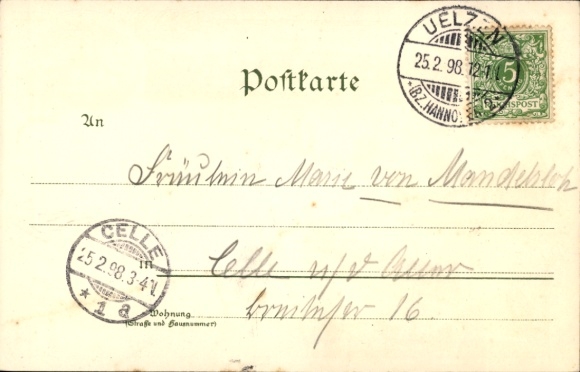 UELZEN
25.2.98.12-1N
* (BZ. HANNOVER) *
5
REICHSPOST
Postkarte
An
Fräulein Marie von Mandelsloh
CELLE
25.2.98.3-4N
* 1 a
in Celle a/d Aller
16.
Wohnung
(Straße und Hausnummer)